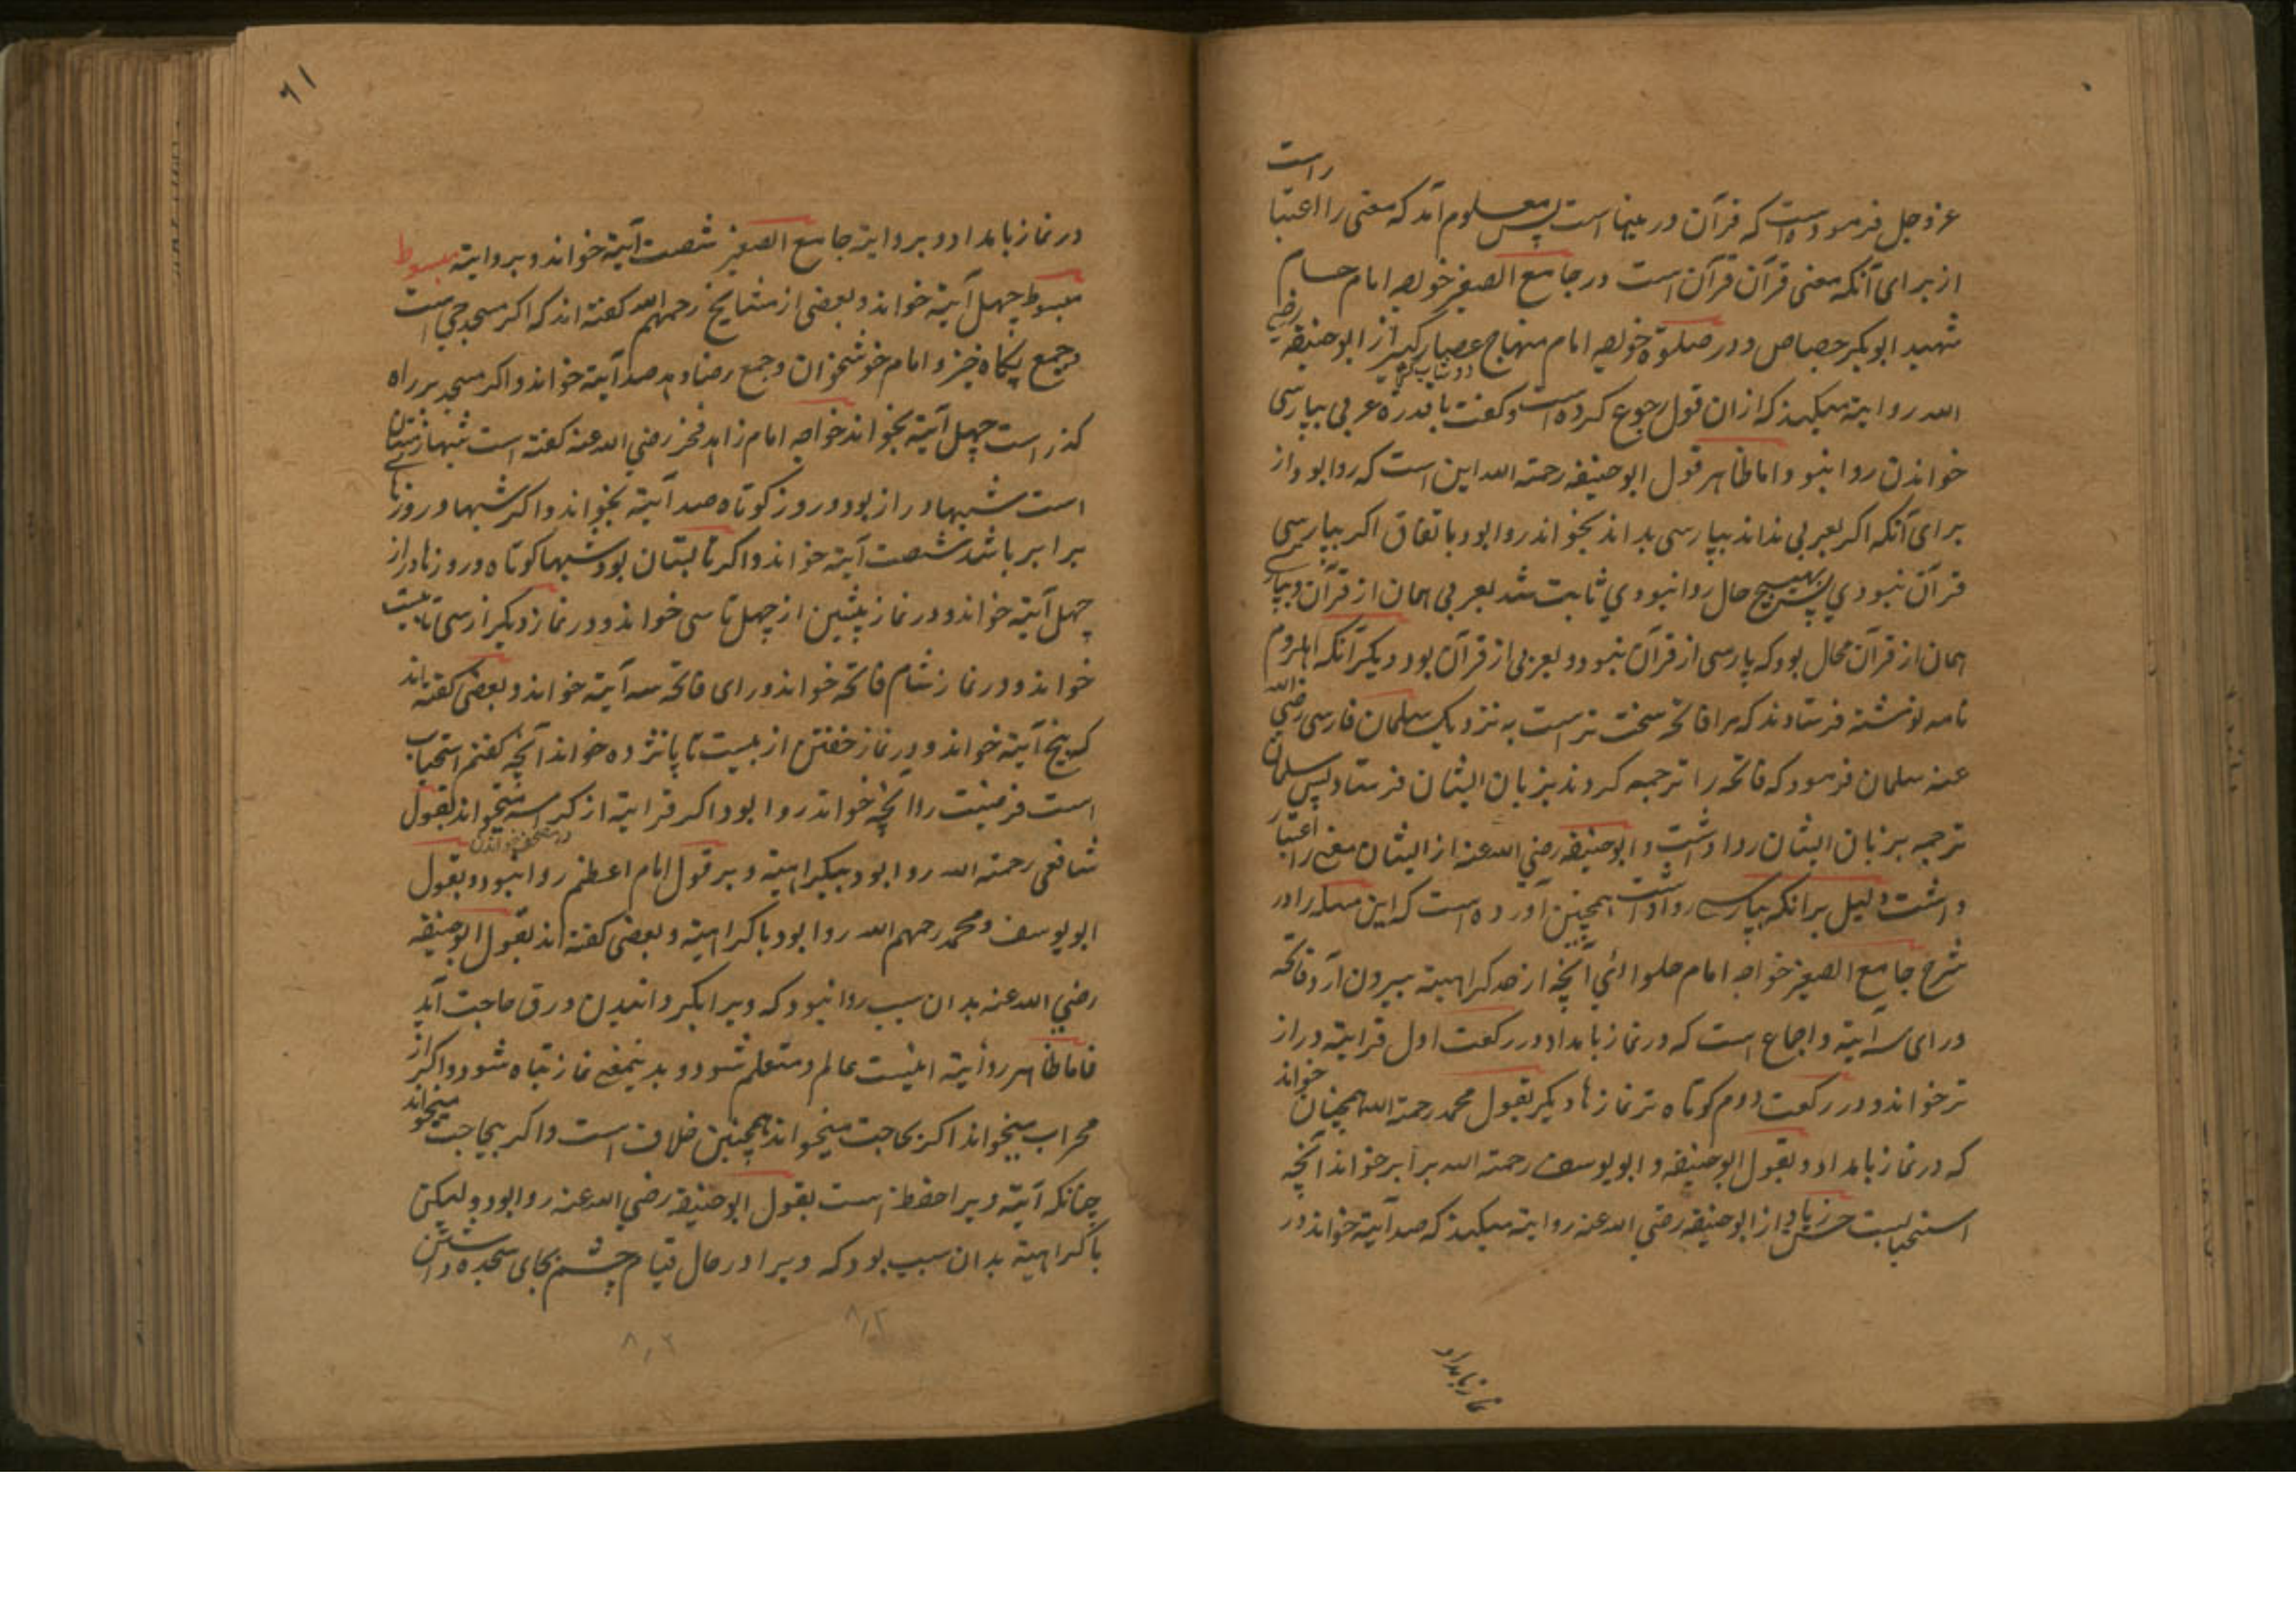 راست
عز و جل فرموده است که قرآن در عینها است پس معلوم آمد که معنی را اعتبا
از برای آنکه معنی قرآن قرآن است در جامع الصغیر خواجه امام حسام
شهید ابوبکر جصاص و در صلوة خواجه امام منهاج عصار کبیر از ابوحنیفه رضی
الله روایة میکند که ازان قول رجوع کرده است و گفت با قدرة عربی بپارسی
خواندن روا نبود اما ظاهر قول ابوحنیفه رحمة الله این است که روا بود از
برای آنکه اگر بعربی نداند بپارسی بداند بخواند روا بود باتفاق اگر بپارسی
قرآن نبودی بهیچ حال روا نبودی ثابت شد بعربی همان از قرآن و بپارسی
همان از قرآن محال بود که پارسی از قرآن نبود و بعربی از قرآن بود و دیگر آنکه اهل روم
نامه نوشته فرستادند که مرا فاتحه سخت تر است به نزدیک سلمان فارسی رضی الله
عنه سلمان فرمود که فاتحه را ترجمه کردند بزبان ایشان فرستاد پس سلمان
ترجمه بزبان ایشان روا داشت و ابوحنیفه رضی الله عنه از ایشان معنی را اعتبار
داشت دلیل برانکه بپارسی روا داشت همچنین آورده است که این مسله را در
شرح جامع الصغیر خواجه امام حلوائی آنچه از حد کراهیة بیرون آرد فاتحه
ورای سه آیة و اجماع است که در نماز بامداد در رکعت اول قرایة دراز
تر خواند و در رکعت دوم کوتاه تر نماز ها دیگر بقول محمد رحمة الله همچنان خواند
که در نماز بامداد و بقول ابوحنیفه و ابویوسف رحمة الله برابر خواند آنچه
استحبابست حسن زیاد از ابوحنیفه رضی الله عنه روایة میکند که صد آیة خواند در
نماز بامداد
۶۱
در نماز بامداد و بروایة جامع الصغیر شصت آیة خواند و بروایة مبسوط
مبسوط چهل آیة خواند و بعضی از مشایخ رحمهم الله گفته اند که اگر مسجد جمعی است
و جمع پگاه خیز و امام خوشخوان و جمع رضا دهد صد آیة خواند و اگر مسجد بر راه
گذر است چهل آیة بخواند خواجه امام زاهد فخر رضی الله عنه گفته است شبها زمستان
است شبها دراز بود و روز کوتاه صد آیة بخواند و اگر شبها و روزها
برابر باشد شصت آیة خواند و اگر تابستان بود شبها کوتاه و روزها دراز
چهل آیة خواند و در نماز پیشین از چهل تا سی خواند و در نماز دیگر از سی تا بیست
خواند و در نماز شام فاتحه خواند ورای فاتحه سه آیة خواند و بعضی گفته اند
که پنج آیة خواند و در نماز خفتن از بیست تا پانزده خواند آنچه گفتم استحباب
است فرضیت را آنچه خواند روا بود اگر قرایة از کراسه میخواند بقول
در مصحف خواندن
شافعی رحمة الله روا بود بیکراهیة و بر قول امام اعظم روا نبود و بقول
ابویوسف و محمد رحمهم الله روا بود با کراهیة و بعضی گفته اند بقول ابوحنیفه
رضی الله عنه بدان سبب روا نبود که ویرا بگردانیدن ورق حاجت آید
فاما ظاهر روایة اینست عالم و متعلم شود و بدینمعنی نماز تباه شود و اگر از
محراب میخواند اگر بحاجت میخواند همچنین خلاف است و اگر بیحاجت میخواند
چنانکه آیة ویرا حفظ است بقول ابوحنیفه رضی الله عنه روا بود ولیکن
با کراهیة بدان سبب بود که ویرا در حال قیام چشم بجای سجده داشتن
۸٫۲
۸٫۲